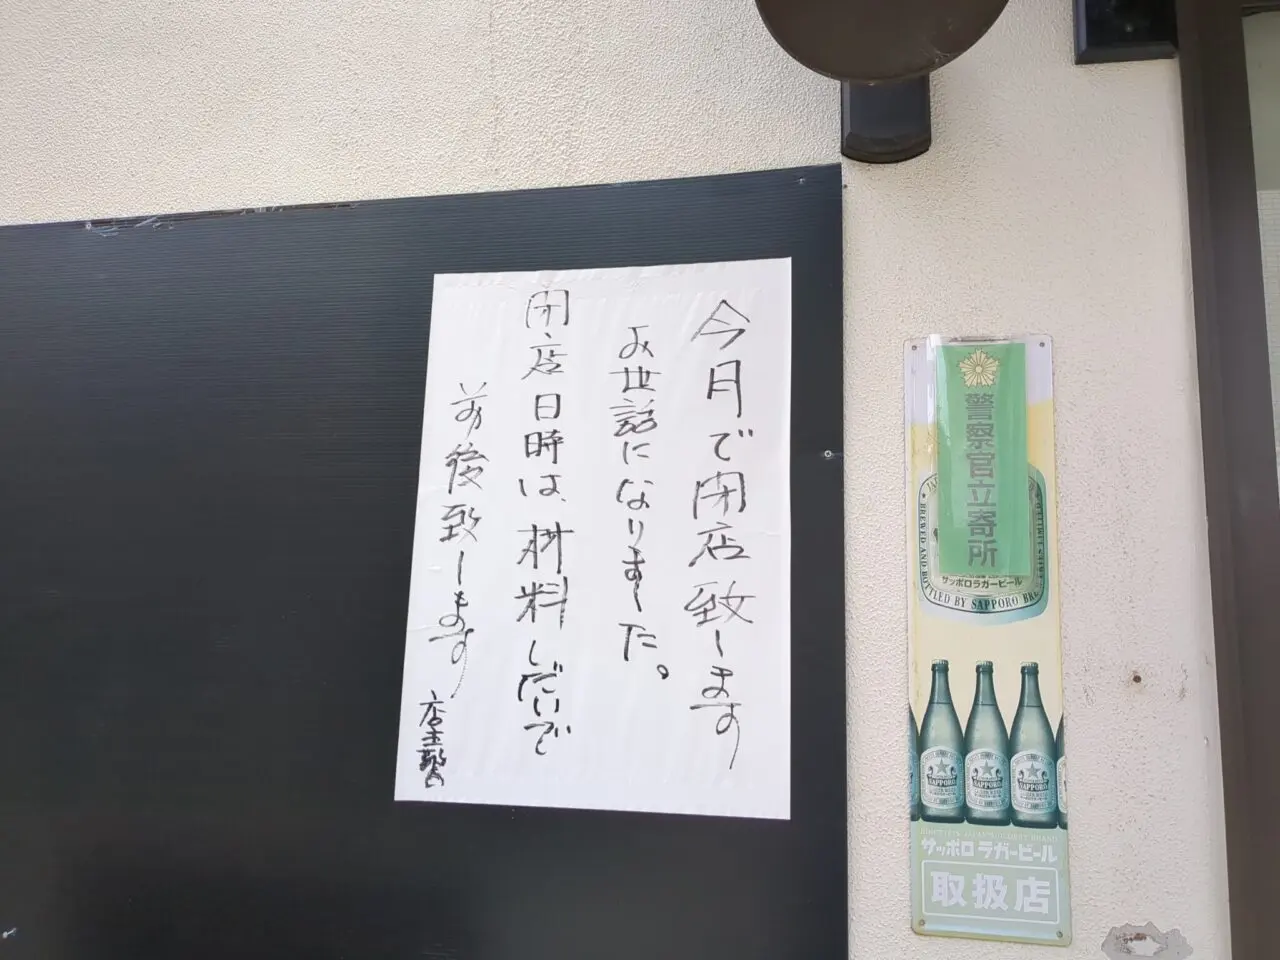 今月で閉店致します
お世話になりました。
閉店日時は、材料しだいで
前後致します
店主
警察官立寄所
サッポロラガービール
BREWED AND BOTTLED BY SAPPORO BRE
SAPPORO
SAPPORO
SAPPORO
サッポロラガービール
取扱店